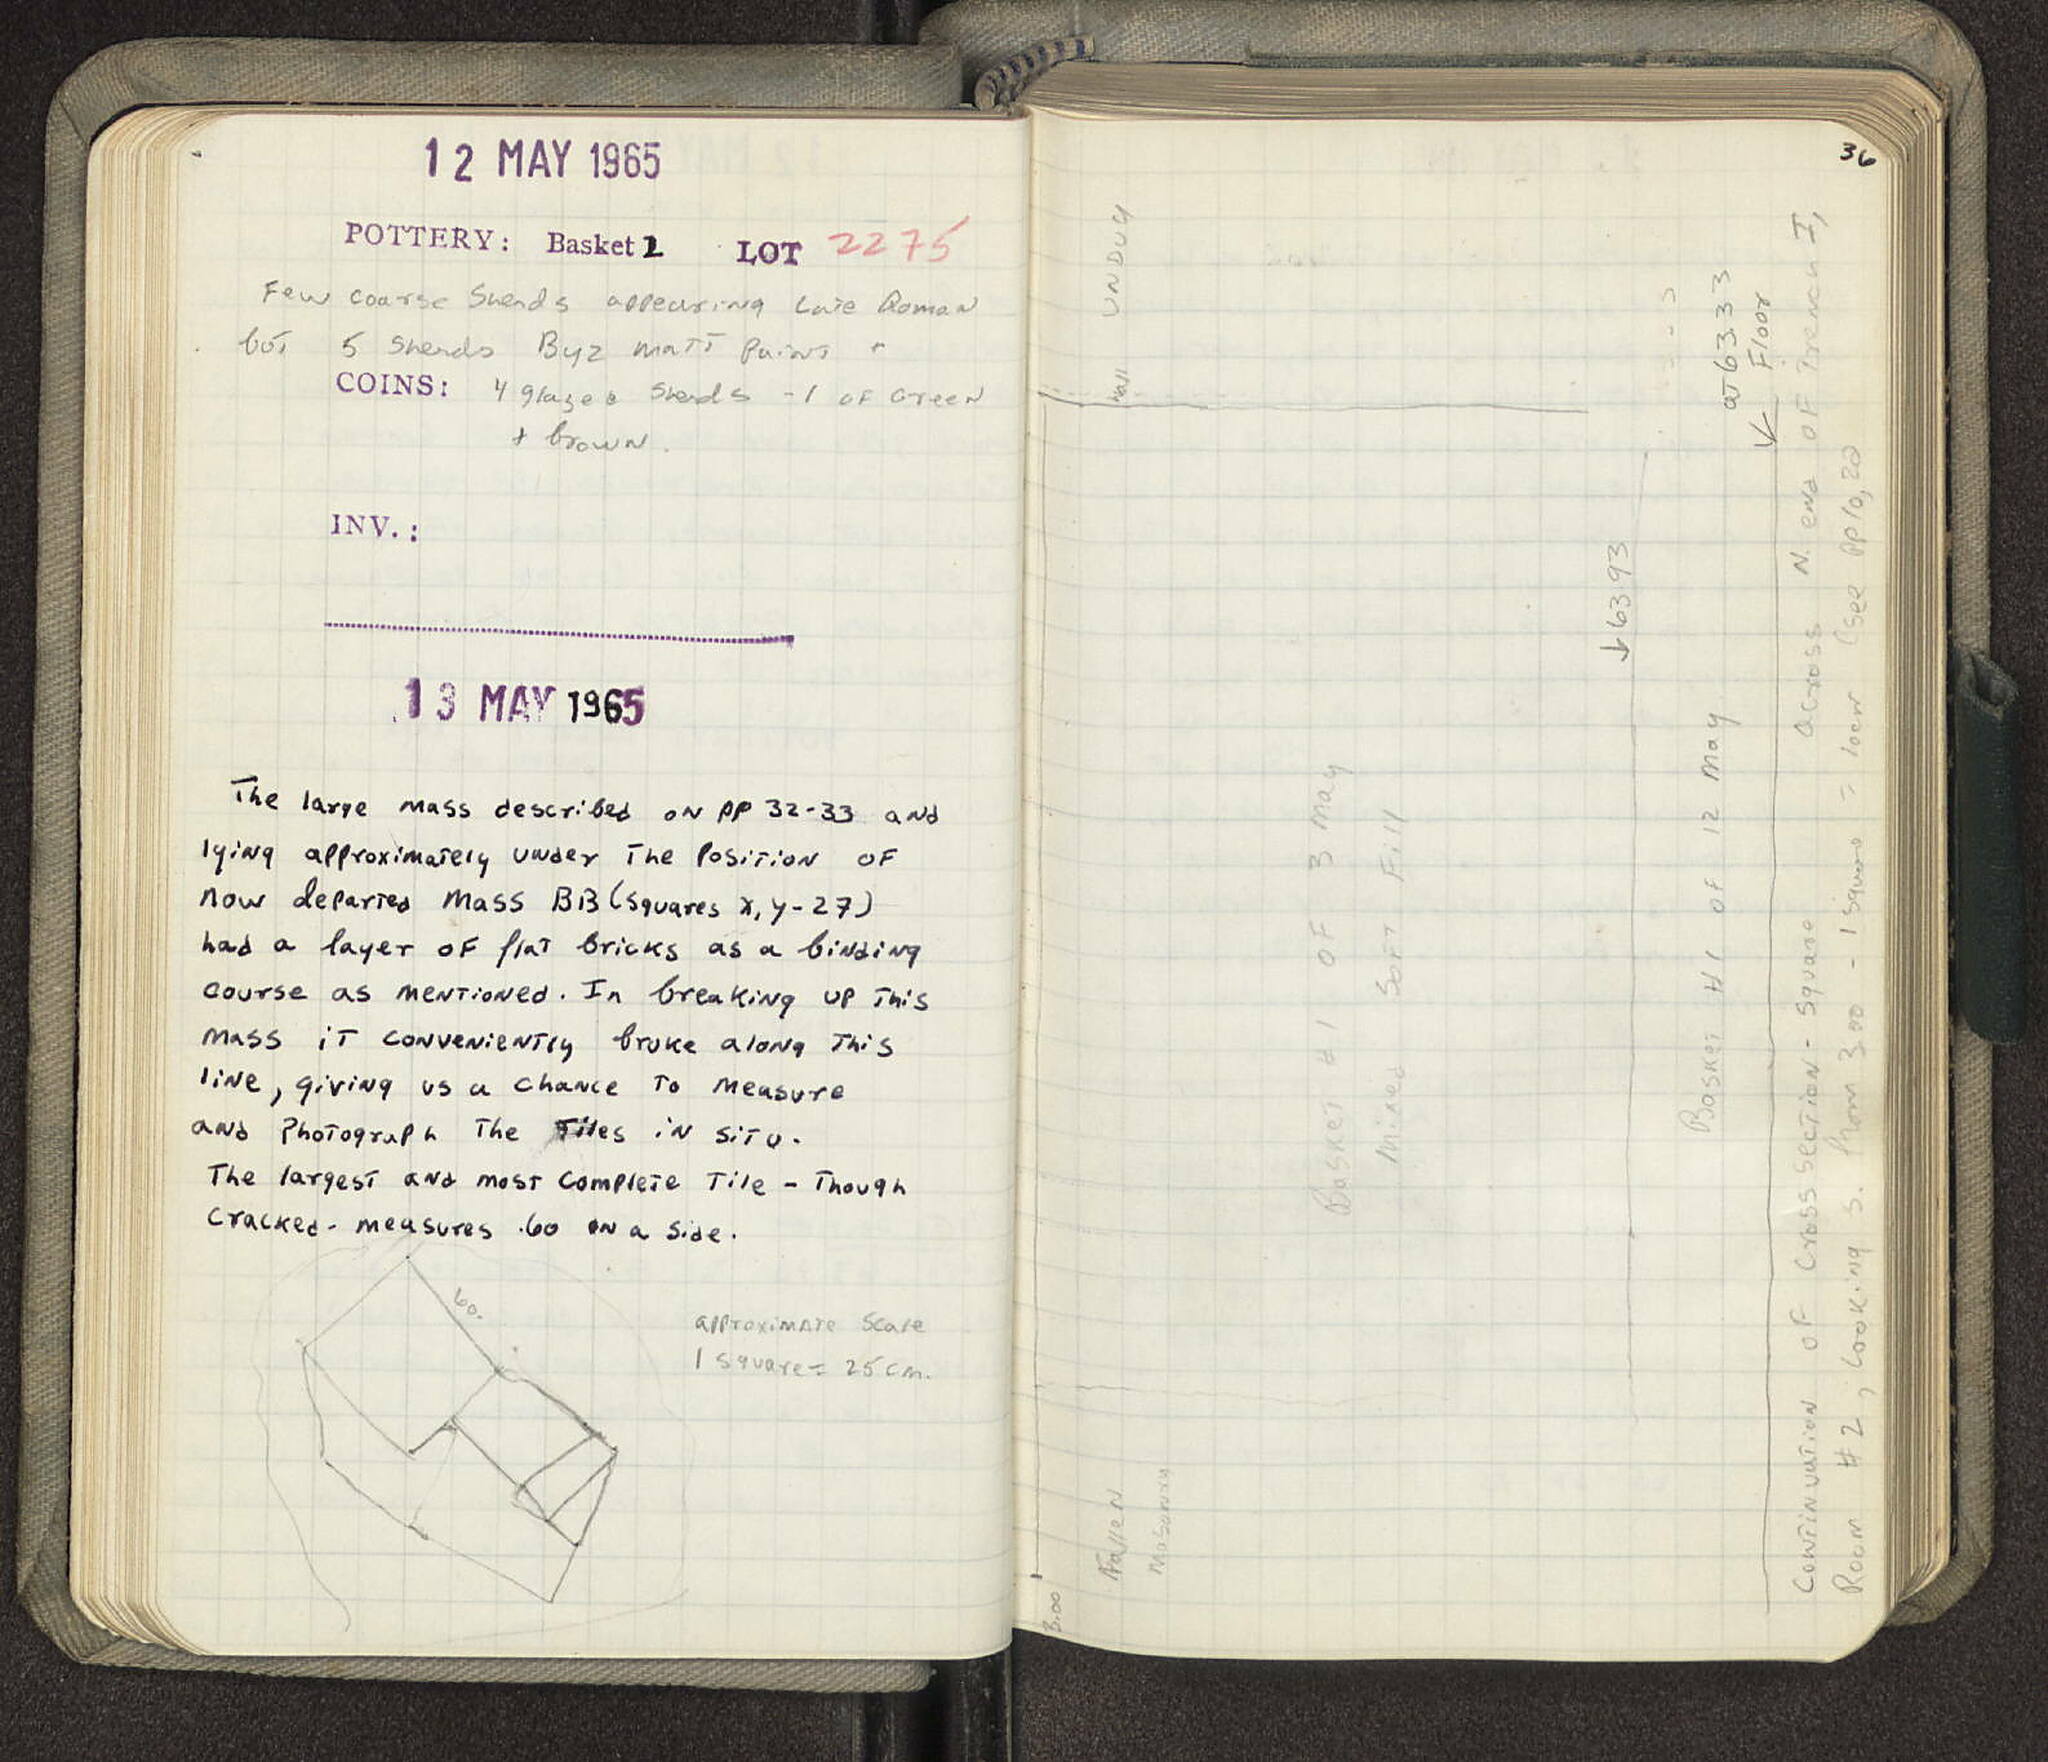 12 MAY 1965
POTTERY: Basket 1 LOT 2275
Few coarse Sherds appearing Late Roman
but 5 sherds Byz matt paint +
COINS: 4 glazed sherds - 1 of Green
+ brown.
INV.:
13 MAY 1965
The large mass described on pp 32-33 and
lying approximately under the position of
now departed Mass BB (squares x, y-27)
had a layer of flat bricks as a binding
course as mentioned. In breaking up this
mass it conveniently broke along this
line, giving us a chance to measure
and photograph the Tiles in situ.
The largest and most complete tile - though
cracked - measures .60 on a side.
60.
approximate scale
1 square = 25 cm.
36
UNDUG
wall
at 63.33
Floor
↓ 63.93
Basket #1 of 3 May
Mixed Soft Fill
Basket #1 of 12 May
Fallen
Masonry
3.00
Continuation of cross section - square across N. end of Trench I,
Room #2, looking S. from 3.00 - 1 square = 10cm (see pp 10, 20